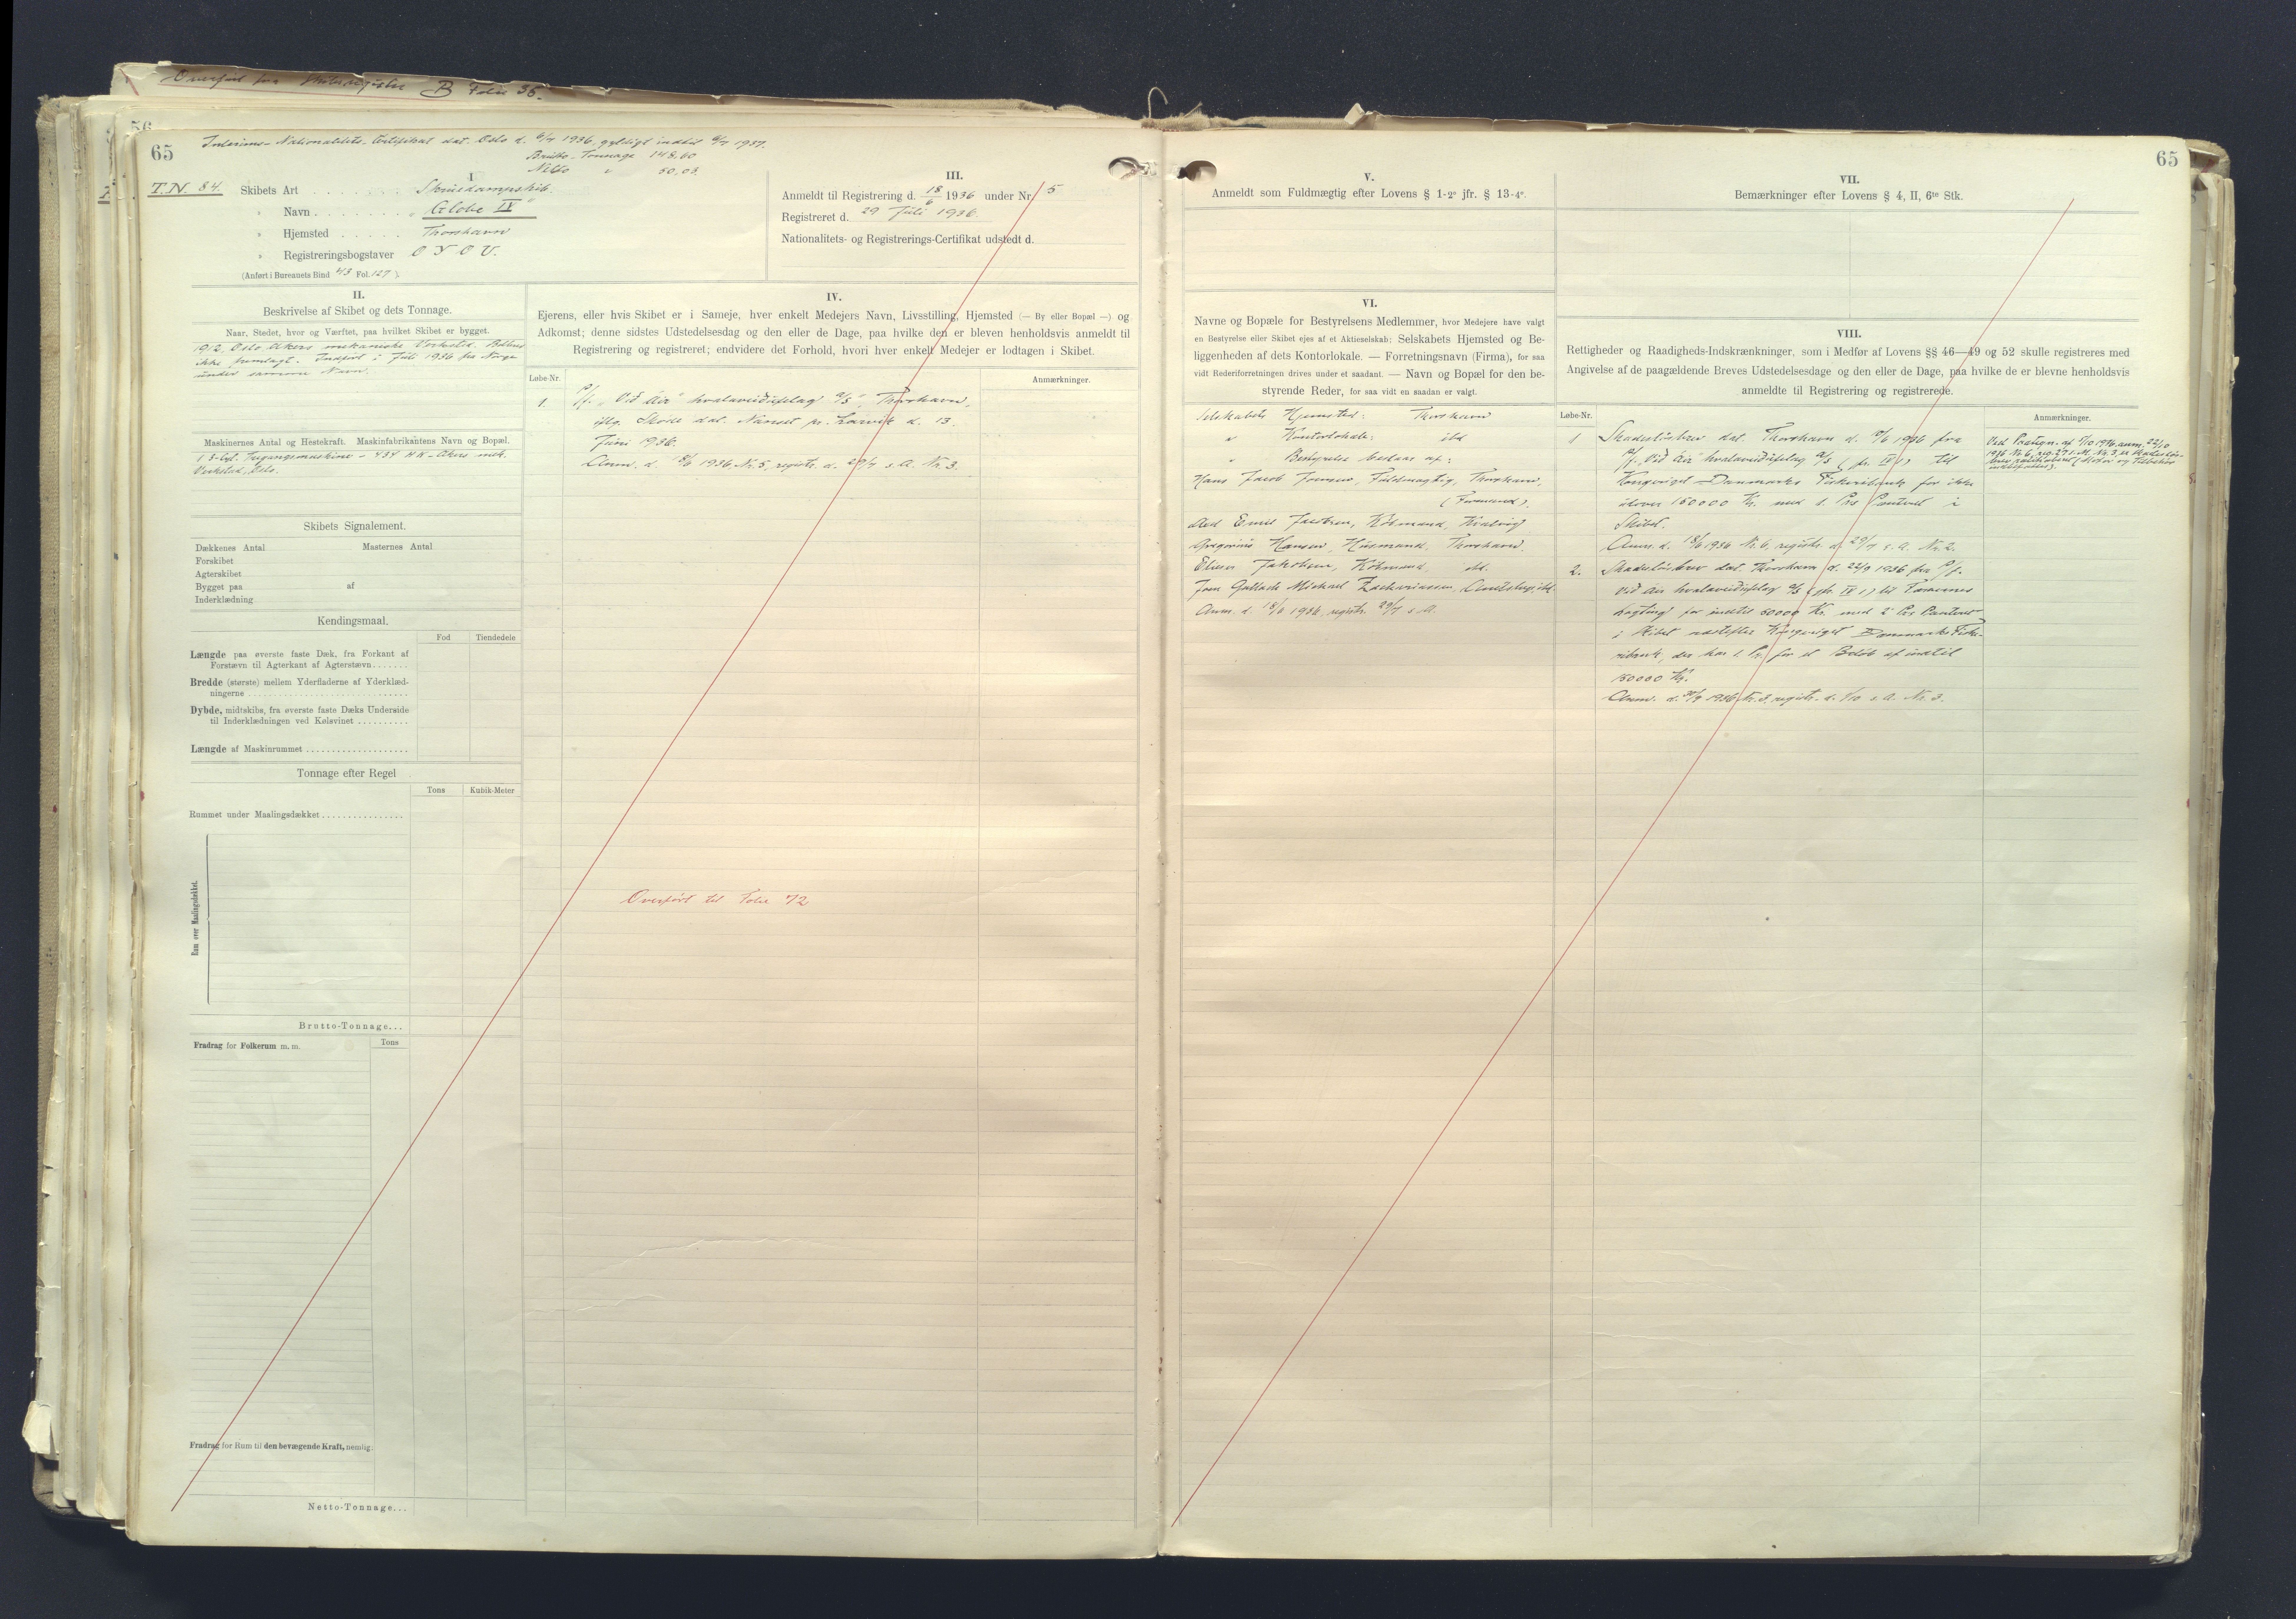 Overført fra Skibsregister B Folio 36.
56
65
Interims-Nationalitets-Certifikat dat. Oslo d. 6/7 1936, gyldigt indtil 6/7 1937.
Brutto-Tonnage 148,60
Netto " 50,03
T.N. 84.
I
Skibets Art . . . . . . . . Skruedampskib.
" Navn . . . . . . . "Globe IV"
" Hjemsted . . . . . Thorshavn
" Registreringsbogstaver O Y O U.
(Anført i Bureauets Bind 43 Fol. 127).
III.
Anmeldt til Registrering d. 18/6 1936 under Nr. 5
Registreret d. 29 Juli 1936.
Nationalitets- og Registrerings-Certifikat udstedt d.
II.
Beskrivelse af Skibet og dets Tonnage.
Naar, Stedet, hvor og Værftet, paa hvilket Skibet er bygget.
1912, Oslo Akers mekaniske Verksted. Bilbrev
ikke fremlagt. Indført i Juli 1936 fra Norge
under samme Navn.
Maskinernes Antal og Hestekraft. Maskinfabrikantens Navn og Bopæl.
1 3-cyl. Tregangsmaskine - 434 HK - Akers mek.
Verksted, Oslo.
Skibets Signalement.
Dækkenes Antal Masternes Antal
Forskibet
Agterskibet
Bygget paa af
Inderklædning
Kendingsmaal.
Fod Tiendedele
Længde paa øverste faste Dæk, fra Forkant af
Forstævn til Agterkant af Agterstævn . . . . . . .
Bredde (største) mellem Yderfladerne af Yderklæd-
ningerne . . . . . . . . . .
Dybde, midtskibs, fra øverste faste Dæks Underside
til Inderklædningen ved Kølsvinet . . . . . . . . . .
Længde af Maskinrummet . . . . . . . . . .
Tonnage efter Regel
Tons Kubik-Meter
Rummet under Maalingsdækket . . . . . . . . . .
Rum over Maalingsdækket.
Brutto-Tonnage...
Fradrag for Folkerum m. m. Tons
Fradrag for Rum til den bevægende Kraft, nemlig:
Netto-Tonnage...
IV.
Ejerens, eller hvis Skibet er i Sameje, hver enkelt Medejers Navn, Livsstilling, Hjemsted (— By eller Bopæl —) og
Adkomst; denne sidstes Udstedelsesdag og den eller de Dage, paa hvilke den er bleven henholdsvis anmeldt til
Registrering og registreret; endvidere det Forhold, hvori hver enkelt Medejer er lodtagen i Skibet.
Løbe-Nr. Anmærkninger.
1. P/f. "Við Áir" hvalaveiðufelag a/s, Thorshavn,
iflg. Skøde dat. Nanset pr. Larvik d. 13.
Juni 1936.
Anm. d. 18/6 1936 Nr. 5, registr. d. 29/7 s. A. Nr. 3.
Overført til Folie 72
65
V.
Anmeldt som Fuldmægtig efter Lovens § 1-2° jfr. § 13-4°.
VI.
Navne og Bopæle for Bestyrelsens Medlemmer, hvor Medejere have valgt
en Bestyrelse eller Skibet ejes af et Aktieselskab; Selskabets Hjemsted og Be-
liggenheden af dets Kontorlokale. — Forretningsnavn (Firma), for saa
vidt Rederiforretningen drives under et saadant. — Navn og Bopæl for den be-
styrende Reder, for saa vidt en saadan er valgt.
Selskabets Hjemsted: Thorshavn
" Kontorlokale: ibd
" Bestyrelse bestaar af:
Hans Jacob Joensen, Fuldmægtig, Thorshavn,
(Formand).
Emil Jacobsen, Købmand, Kvalvig
Gregorius Hansen, Thorshavn.
Jakobsen, Købmand, ibd.
Michael Zachariassen,
Anm. d. 18/6 1936, registr. 29/7 s. A.
VII.
Bemærkninger efter Lovens § 4, II, 6te Stk.
VIII.
Rettigheder og Raadigheds-Indskrænkninger, som i Medfør af Lovens §§ 46—49 og 52 skulle registreres med
Angivelse af de paagældende Breves Udstedelsesdage og den eller de Dage, paa hvilke de er blevne henholdsvis
anmeldte til Registrering og registrerede.
Løbe-Nr. Anmærkninger.
1 Skadesløsbrev dat. Thorshavn d. 1936 fra
P/f. "Við Áir" hvalaveiðufelag a/s (fr. IV 1) til
Kongeriget Danmarks Fiskeribank for ikke
udover 150000 Kr. med 1. Prs Panteret i
Skibet.
Anm. d. 18/6 1936 Nr. 6, registr. d. 29/7 s. A. Nr. 2.
2. Skadesløsbrev dat. Thorshavn d. 22/9 1936 fra P/f.
Við Áir hvalaveiðufelag a/s (fr. IV 1) til Færøernes
Lagting for indtil 50000 Kr. med 2 Prs Panteret
i Skibet næstefter Kongeriget Danmarks Fiske-
ribank, der har 1. Pr. for et Beløb af indtil
150000 Kr.
Anm. d. 1936 Nr. 3, registr. d. 1/10 s. A. Nr. 3.
Ved Paategn. af 1936 anm. 22/10
1936 Nr. 6, reg. 27 s. M. Nr. 3, er Skadesløs-
brev (Motor og Tilbehør